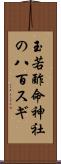 玉若酢命神社
の八百スギ